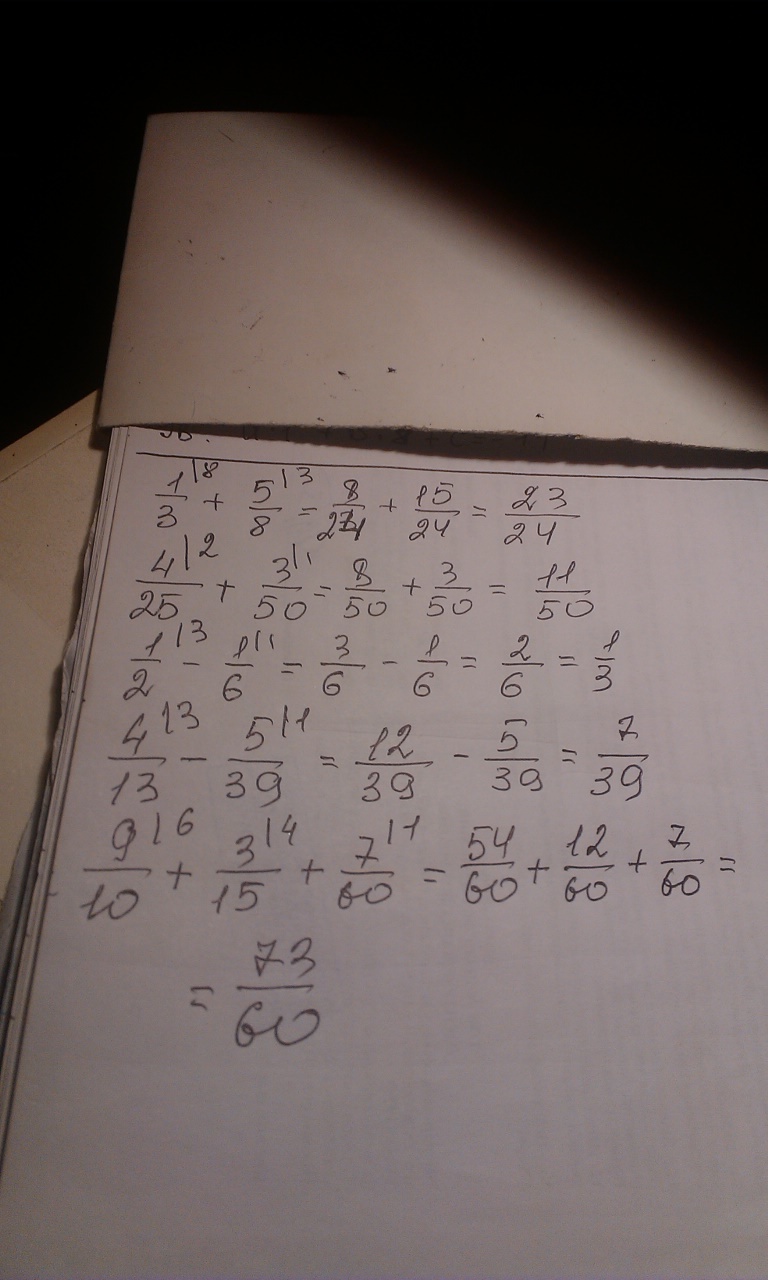 1/3|8 + 5/8|3 = 8/24 + 15/24 = 23/24
4/25|2 + 3/50|1 = 8/50 + 3/50 = 11/50
1/2|3 - 1/6|1 = 3/6 - 1/6 = 2/6 = 1/3
4/13|3 - 5/39|1 = 12/39 - 5/39 = 7/39
9/10|6 + 3/15|4 + 7/60|1 = 54/60 + 12/60 + 7/60 =
= 73/60